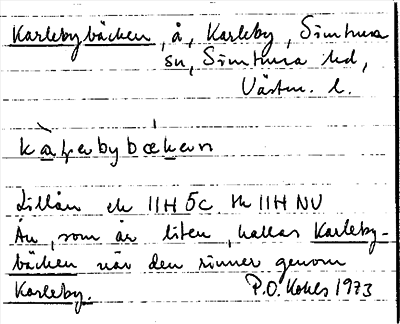 Karlebybäcken, å, Karleby, Simtuna
sn, Simtuna hd,
Västm. l.
Lillån ek 11H 5c tk 11H NV
Ån, som är liten, kallas Karleby-
bäcken när den rinner genom
Karleby. P.O. Kohls 1973